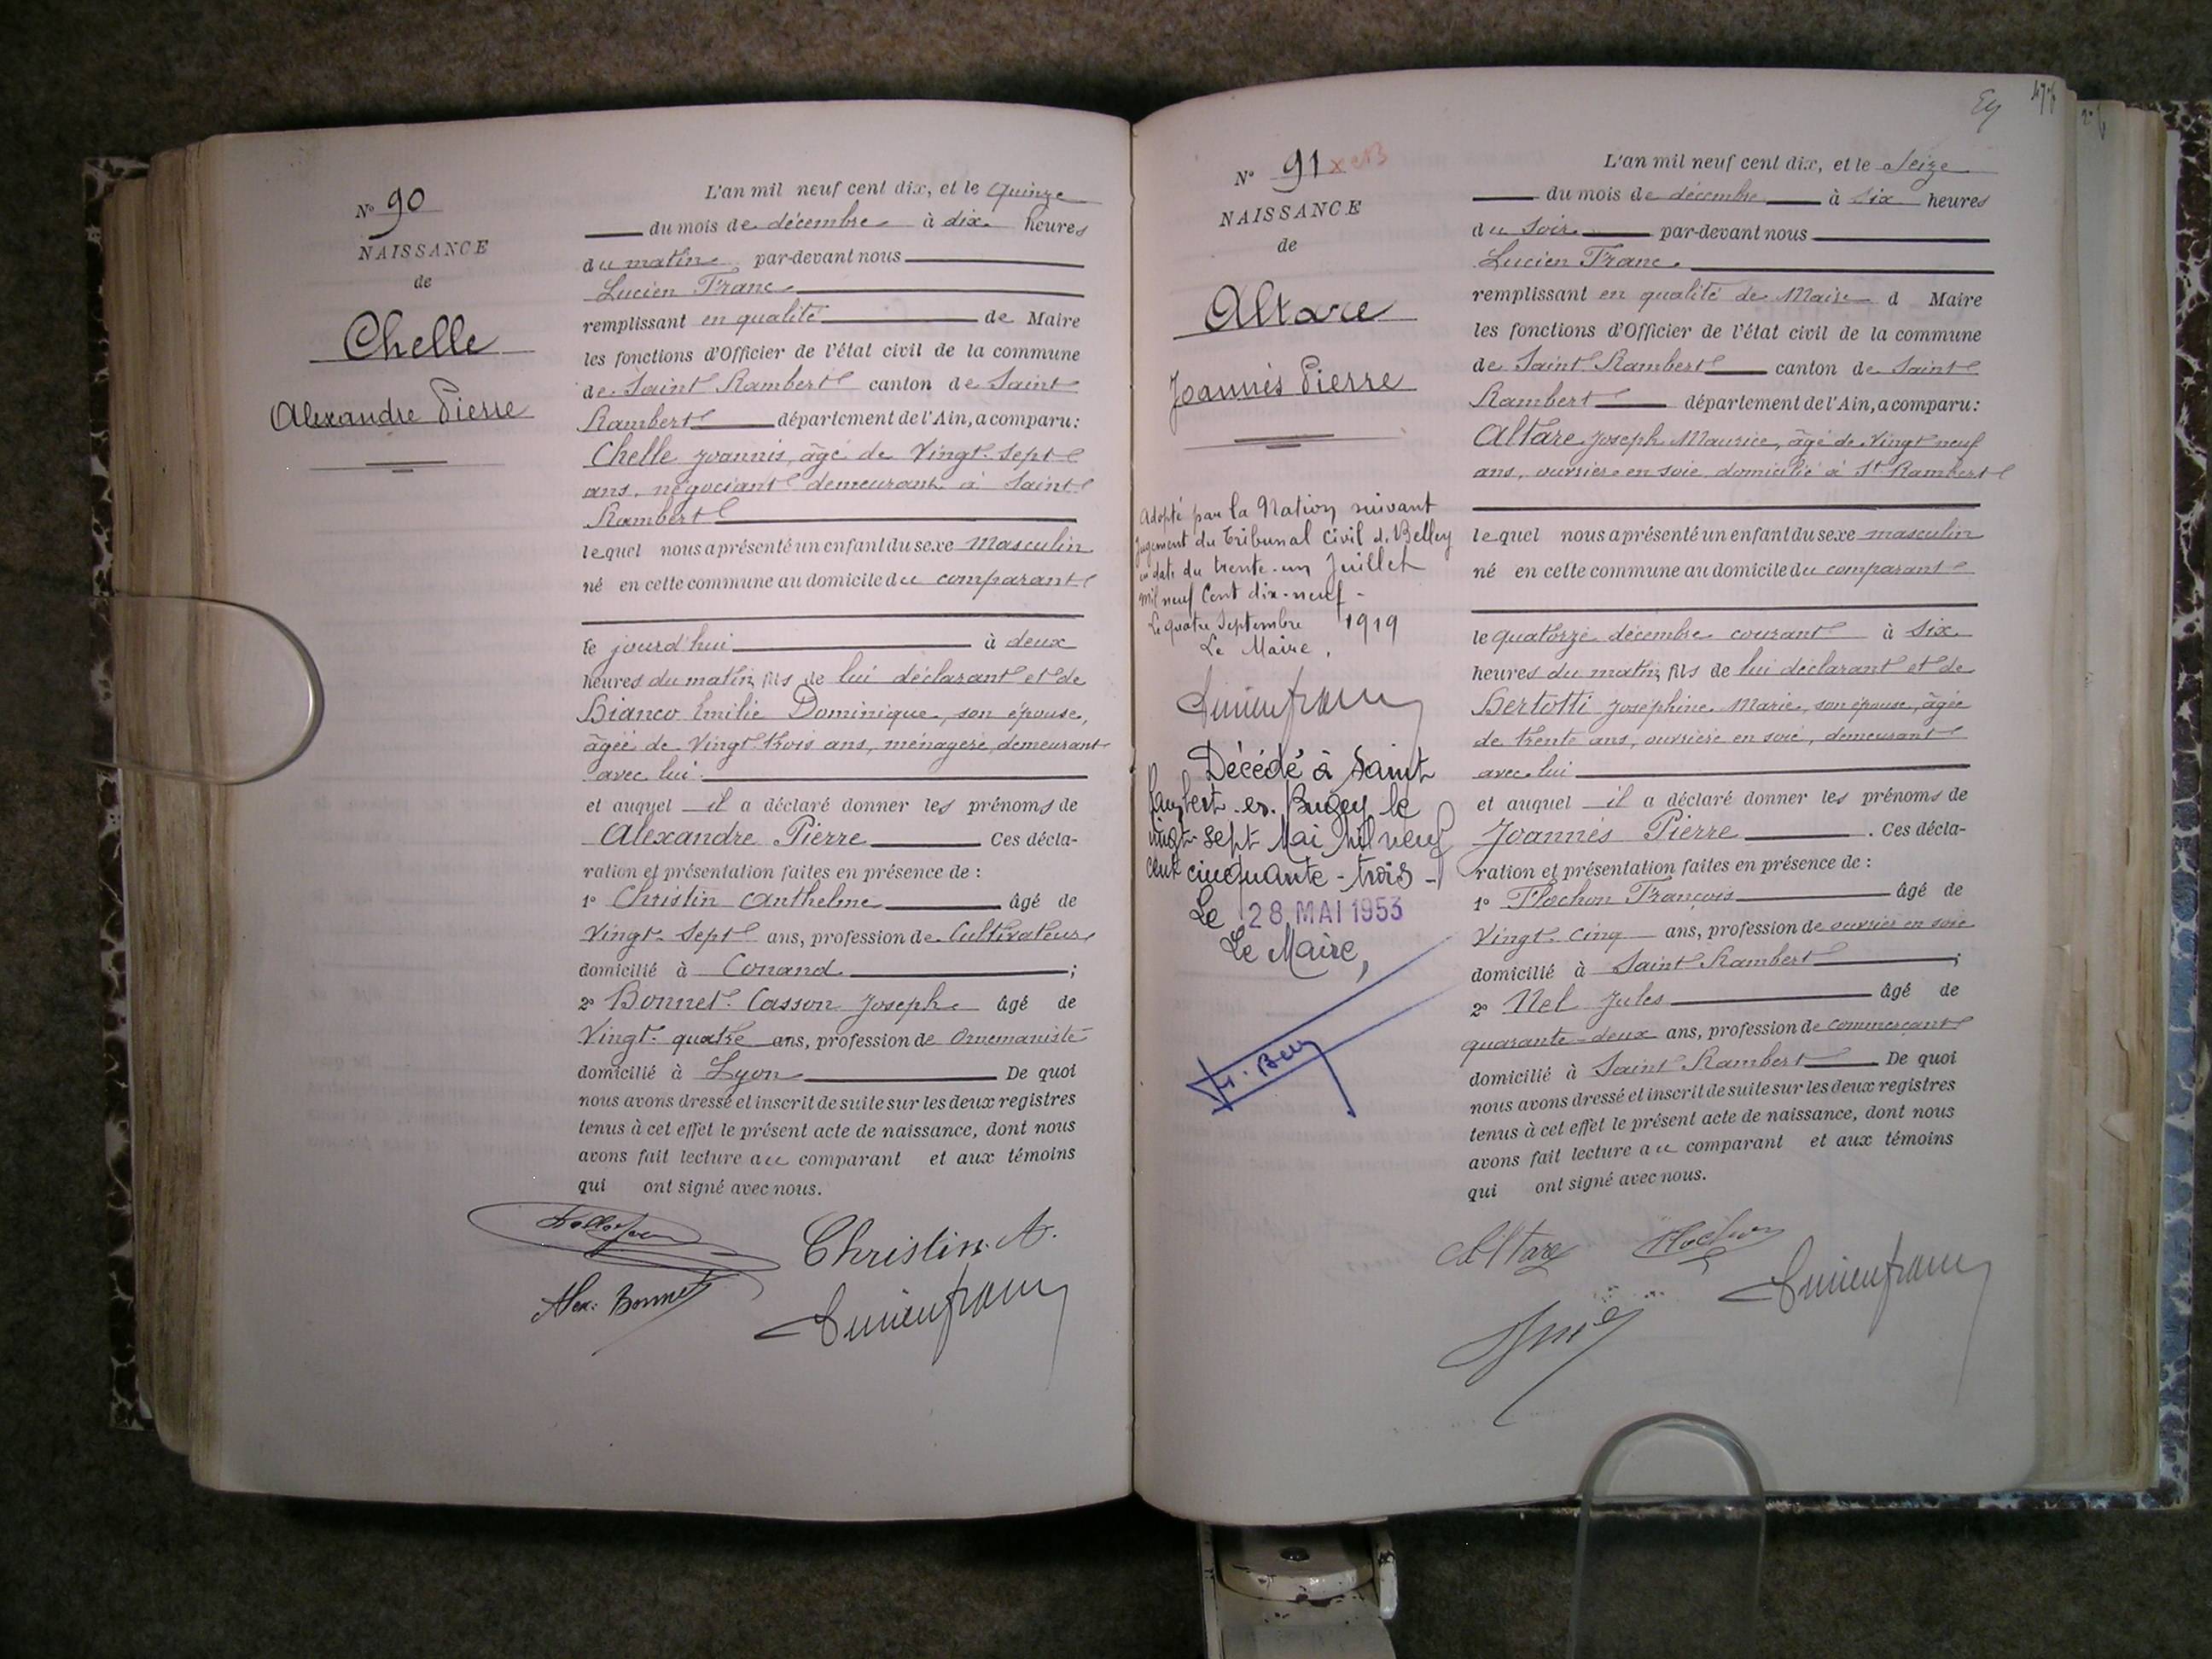 N° 90
NAISSANCE
de
Chelle
Alexandre Pierre
L'an mil neuf cent dix, et le Quinze
du mois de décembre à dix heures
du matin par-devant nous
Lucien Franc
remplissant en qualité de Maire
les fonctions d'Officier de l'état civil de la commune
de Saint Rambert canton de Saint
Rambert département de l'Ain, a comparu:
Chelle Joannis, âgé de Vingt-Sept
ans, négociant demeurant à Saint
Rambert
lequel nous a présenté un enfant du sexe masculin
né en cette commune au domicile du comparant
le jourd'hui à deux
heures du matin, fils de lui déclarant et de
Bianco Emilie Dominique, son épouse,
âgée de Vingt-trois ans, ménagère, demeurant
avec lui
et auquel il a déclaré donner les prénoms de
Alexandre Pierre Ces décla-
ration et présentation faites en présence de :
1° Christin Anthelme âgé de
Vingt-Sept ans, profession de Cultivateur
domicilié à Conand ;
2° Bonnet-Casson Joseph âgé de
Vingt-quatre ans, profession de Ornemaniste
domicilié à Lyon De quoi
nous avons dressé et inscrit de suite sur les deux registres
tenus à cet effet le présent acte de naissance, dont nous
avons fait lecture au comparant et aux témoins
qui ont signé avec nous.
Christin. A.
Alex. Bonnet
Lucien franc
N° 91
NAISSANCE
de
Altare
Joannès Pierre
Adopté par la Nation suivant
jugement du Tribunal Civil de Belley
en date du trente-un Juillet
mil neuf Cent dix-neuf -
Le quatre Septembre 1919
Le Maire,
Lucien franc
Décédé à Saint
Rambert-en-Bugey le
vingt-sept Mai mil neuf
cent cinquante-trois -
Le 28 MAI 1953
Le Maire,
L'an mil neuf cent dix, et le Seize
du mois de décembre à Six heures
du Soir par-devant nous
Lucien Franc
remplissant en qualité de Maire d Maire
les fonctions d'Officier de l'état civil de la commune
de Saint Rambert canton de Saint
Rambert département de l'Ain, a comparu:
Altare Joseph Maurice, âgé de Vingt neuf
ans, ouvrier en soie, domicilié à St Rambert
lequel nous a présenté un enfant du sexe masculin
né en cette commune au domicile du comparant
le quatorze décembre courant à Six
heures du matin, fils de lui déclarant et de
Bertotti Joséphine Marie, son épouse, âgée
de trente ans, ouvrière en soie, demeurant
avec lui
et auquel il a déclaré donner les prénoms de
Joannès Pierre . Ces décla-
ration et présentation faites en présence de :
1° Plochon François âgé de
Vingt-Cinq ans, profession de ouvrier en soie
domicilié à Saint Rambert ;
2° Nel Jules âgé de
quarante-deux ans, profession de commerçant
domicilié à Saint Rambert De quoi
nous avons dressé et inscrit de suite sur les deux registres
tenus à cet effet le présent acte de naissance, dont nous
avons fait lecture au comparant et aux témoins
qui ont signé avec nous.
Altare Plochon
Lucien franc